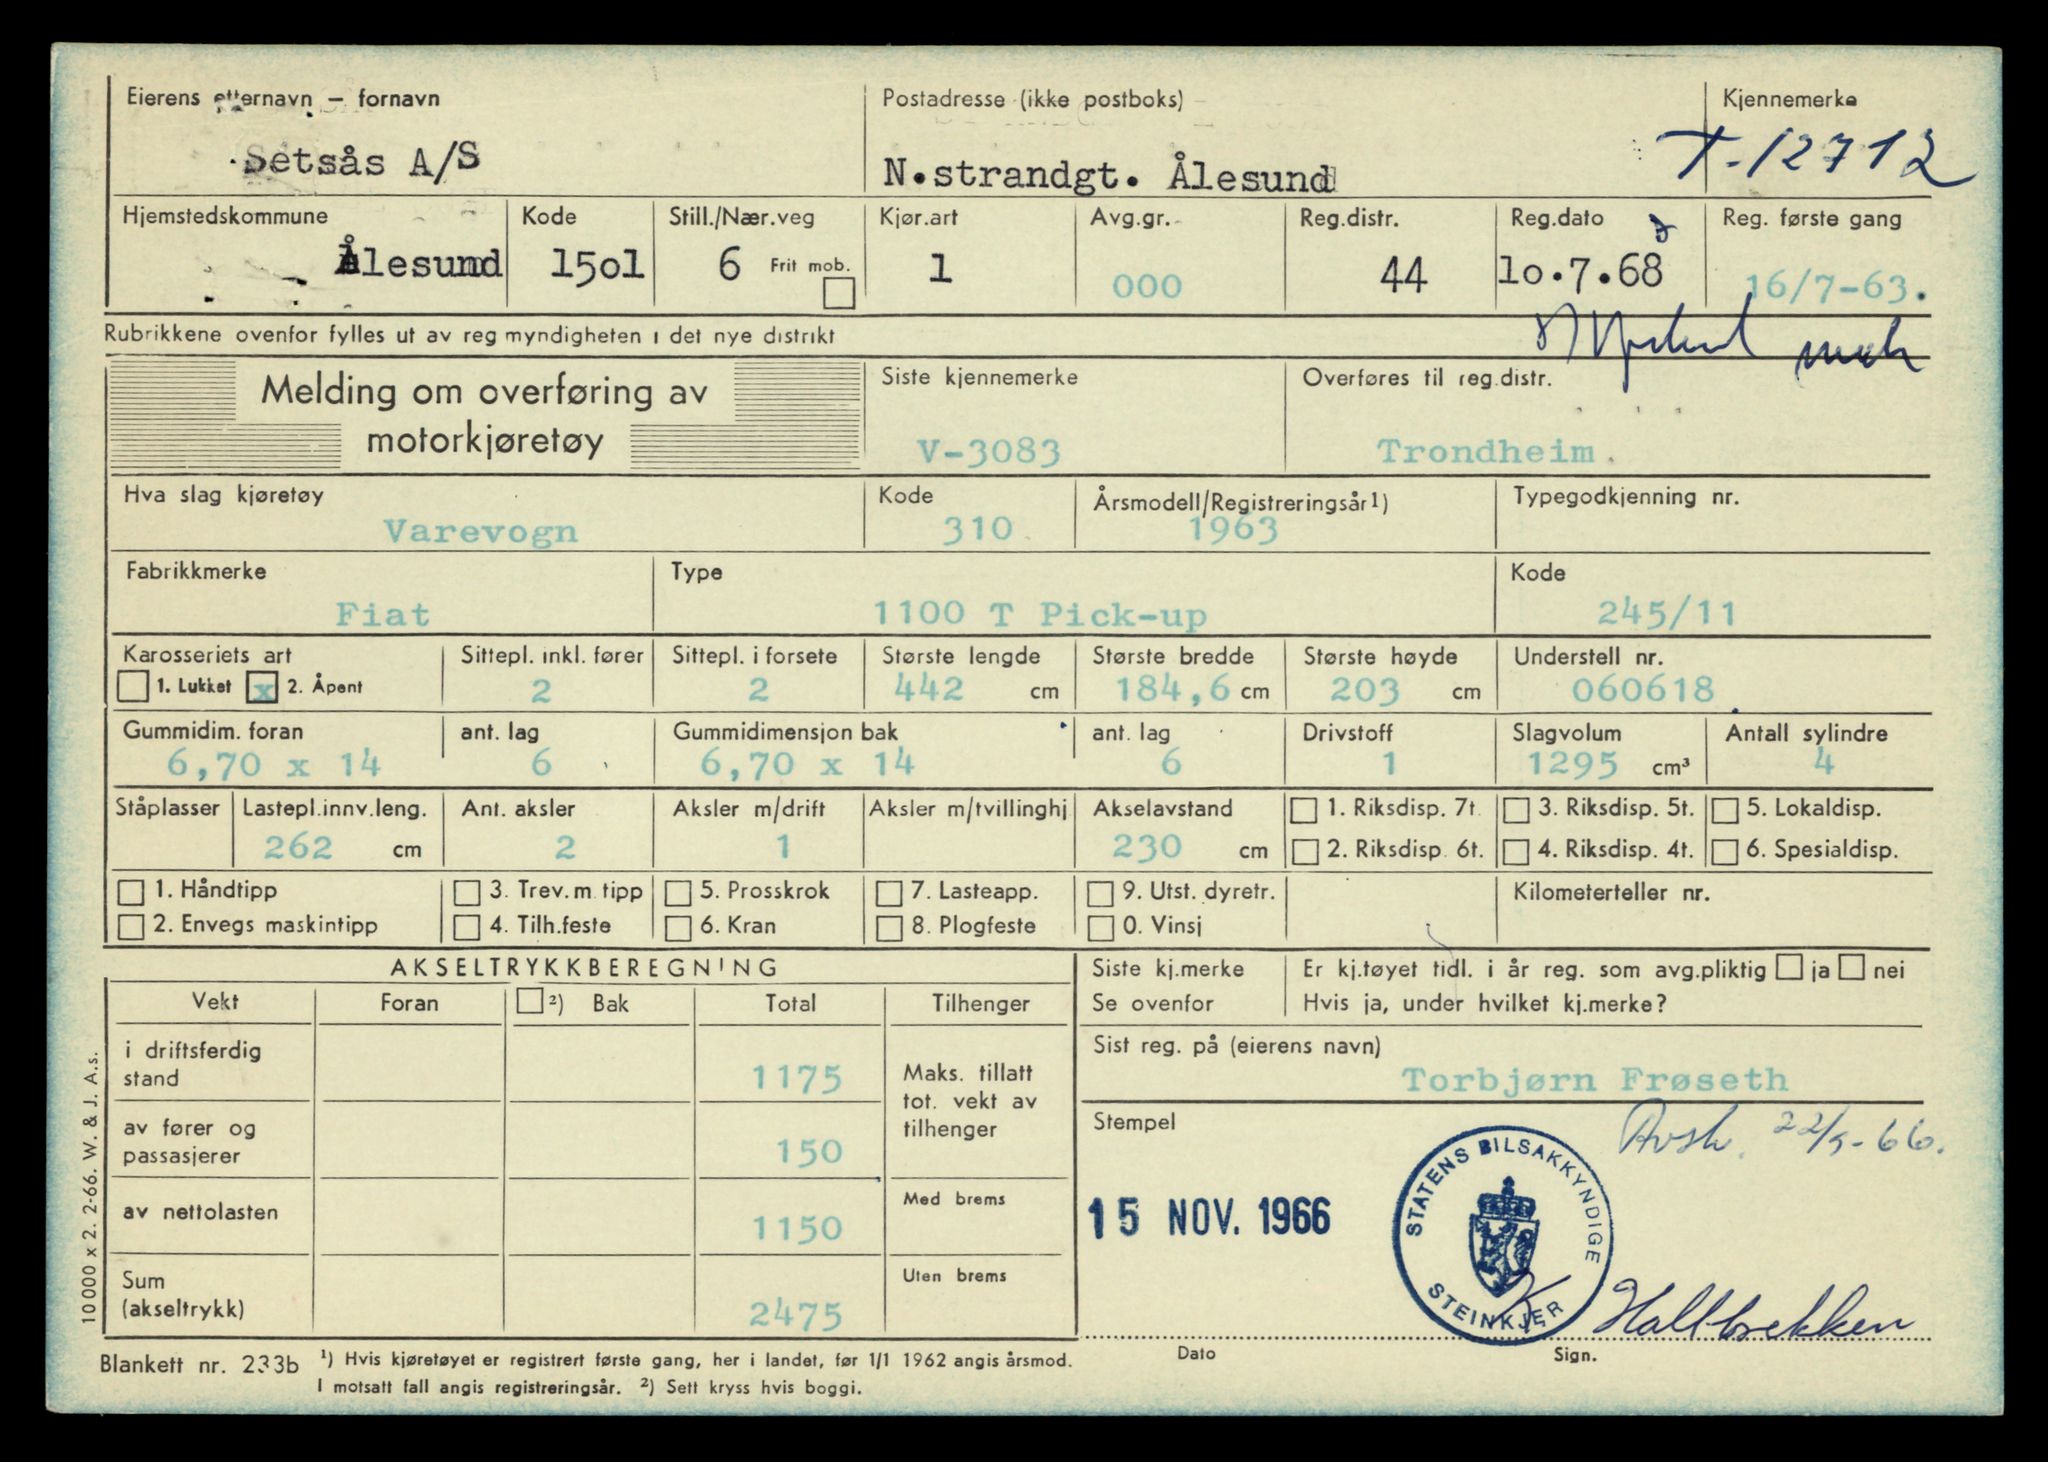 Eierens etternavn – fornavn
Setsås A/S
Postadresse (ikke postboks)
N.strandgt. Ålesund
Kjennemerke
T-12712
Hjemstedskommune
Ålesund
Kode
15o1
Still./Nær.veg
6 Frit mob.
Kjør.art
1
Avg.gr.
000
Reg.distr.
44
Reg.dato
1o.7.68
Reg. første gang
16/7-63.
Rubrikkene ovenfor fylles ut av reg myndigheten i det nye distrikt
Melding om overføring av
motorkjøretøy
Siste kjennemerke
V-3083
Overføres til reg.distr.
Trondheim.
Hva slag kjøretøy
Varevogn
Kode
310
Årsmodell/Registreringsår1)
1963
Typegodkjenning nr.
Fabrikkmerke
Fiat
Type
1100 T Pick-up
Kode
245/11
Karosseriets art
1. Lukket x 2. Åpent
Sittepl. inkl. fører
2
Sittepl. i forsete
2
Største lengde
442 cm
Største bredde
184,6 cm
Største høyde
203 cm
Understell nr.
060618
Gummidim. foran
6,70 x 14
ant. lag
6
Gummidimensjon bak
6,70 x 14
ant. lag
6
Drivstoff
1
Slagvolum
1295 cm³
Antall sylindre
4
Ståplasser
Lastepl.innv.leng.
262 cm
Ant. aksler
2
Aksler m/drift
1
Aksler m/tvillinghj
Akselavstand
230 cm
1. Riksdisp. 7t. 3. Riksdisp. 5t. 5. Lokaldisp.
2. Riksdisp. 6t. 4. Riksdisp. 4t. 6. Spesialdisp.
1. Håndtipp 3. Trev.m.tipp 5. Prosskrok 7. Lasteapp. 9. Utst. dyretr.
2. Envegs maskintipp 4. Tilh.feste 6. Kran 8. Plogfeste 0. Vinsj
Kilometerteller nr.
AKSELTRYKKBEREGNING
Vekt Foran ²) Bak Total Tilhenger
i driftsferdig
stand
1175
av fører og
passasjerer
150
av nettolasten
1150
Sum
(akseltrykk)
2475
Maks. tillatt
tot. vekt av
tilhenger
Med brems
Uten brems
Siste kj.merke
Se ovenfor
Er kj.tøyet tidl. i år reg. som avg.pliktig ja nei
Hvis ja, under hvilket kj.merke?
Sist reg. på (eierens navn)
Torbjørn Frøseth
Stempel
Avsk. 22/5-66.
15 NOV. 1966
STATENS BILSAKKYNDIGE
STEINKJER
K. Hallbrekken
Dato
Sign.
10000 x 2. 2-66. W. & J. A.s.
Blankett nr. 233b
¹) Hvis kjøretøyet er registrert første gang, her i landet, før 1/1 1962 angis årsmod.
I motsatt fall angis registreringsår. ²) Sett kryss hvis boggi.